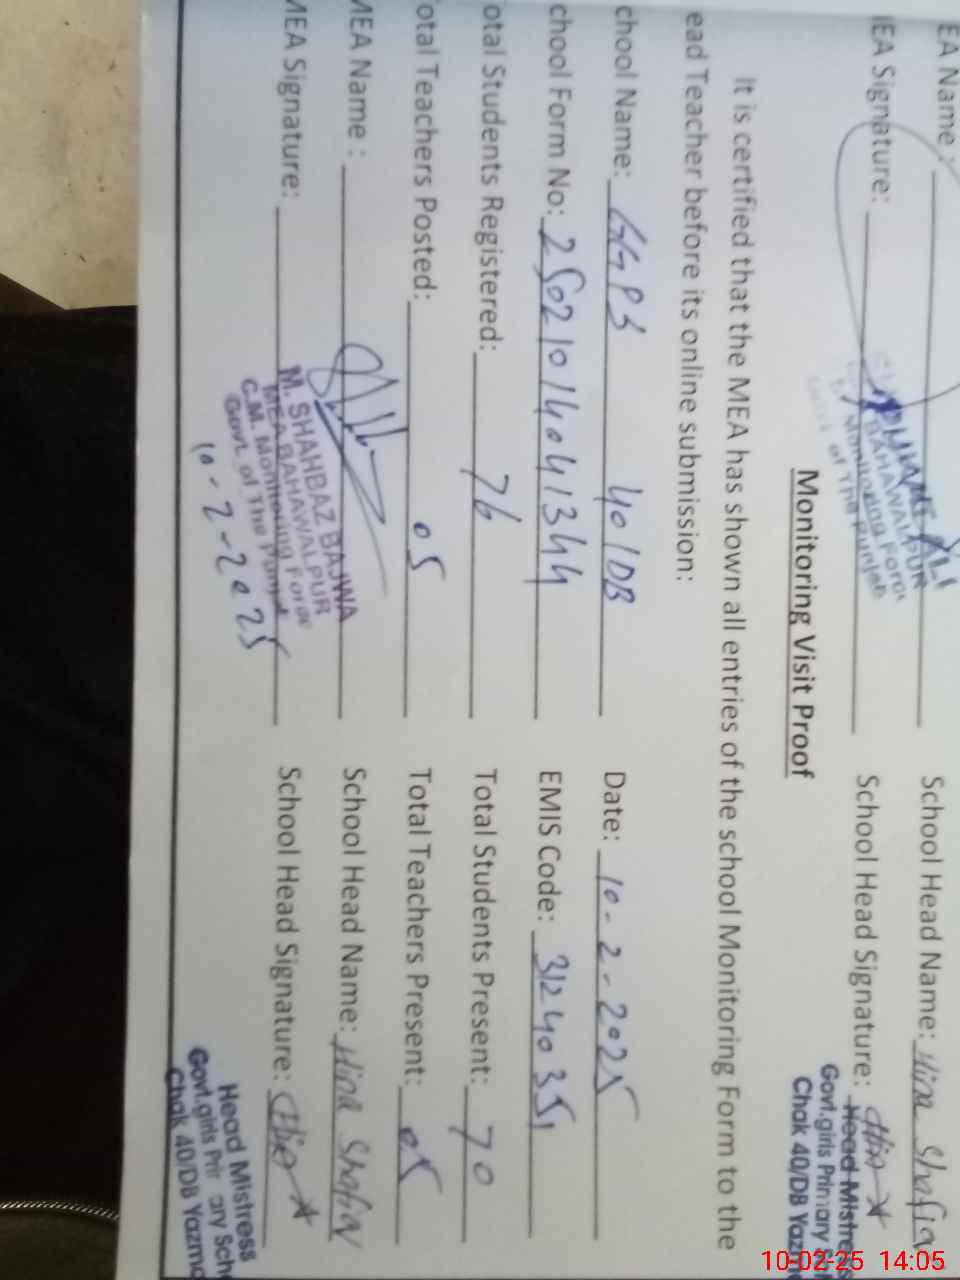 EA Name :
School Head Name: Hina Shafiq
EA Signature:
School Head Signature: Hina
BAHAWALPUR
Monitoring Force
of The Punjab
Head Mistress
Govt.girls Primary Sh
Chak 40/DB Yazm
Monitoring Visit Proof
It is certified that the MEA has shown all entries of the school Monitoring Form to the
ead Teacher before its online submission:
chool Name: GGPS 40/DB
Date: 10-2-2025
chool Form No: 25021014041344
EMIS Code: 31240351
otal Students Registered: 76
Total Students Present: 70
otal Teachers Posted: 05
Total Teachers Present: 05
MEA Name :
School Head Name: Hina Shafiq
MEA Signature:
School Head Signature:
M. SHAHBAZ BAJWA
MEA BAHAWALPUR
C.M. Monitoring Force
Govt. of The Punjab
10-2-2025
Head Mistress
Govt.girls Pri ary Sch
Chak 40/DB Yazma
10-02-25 14:05